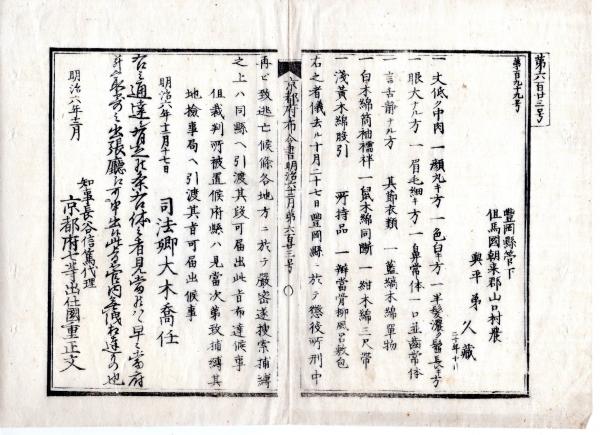 第六百廿三号
第百九十九号
豊岡縣管下
但馬國朝来郡山口村農
與平弟 久藏
二十年十ヶ月
一丈低ク中肉 一顔丸キ方 一色白キ方 一半髪濃ク髷長キ方
一眼大ナル方 一眉毛細キ方 一鼻常体 一口並歯常体
一言舌静ナル方 其節衣類 一藍縞木綿單物
一白木綿筒袖襦袢 一鼠木綿同断 一紺木綿三尺帯
一浅黄木綿股引 所持品 一辨當骨柳風呂敷包
右之者儀去ル十月二十七日豊岡縣ニ於テ懲役所刑中
京都府布令書明治六年十二月第六百廿三号
再ビ致逃亡候條各地方ニ於テ嚴密遂搜索捕縛
之上ハ同縣ヘ引渡其段可届出此旨布達候事
但裁判所被置候府縣ハ見當次第致捕縛其
地檢事局ヘ引渡其旨可届出候事
明治六年十二月十七日 司法卿大木喬任
右之通達有之候条右体之者見當候ハヽ早々當府
并最寄之出張廳江可申出候此旨管内無洩相達るもの也
明治六年十二月 知事長谷信篤代理
京都府七等出仕國重正文